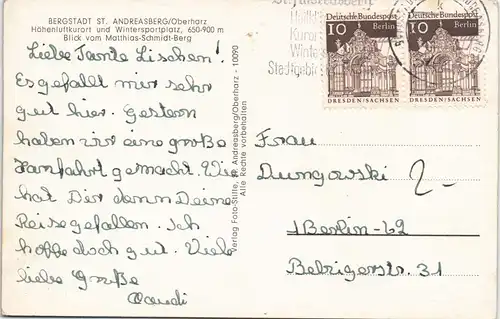 BERGSTADT ST. ANDREASBERG/Oberharz
Höhenluftkurort und Wintersportplatz, 650-900 m
Blick vom Matthias-Schmidt-Berg
Liebe Tante Lischen!
Es gefällt mir sehr
gut hier. Gestern
haben wir eine große
Harzfahrt gemacht. Wie
hat Dir denn Deine
Reise gefallen. Ich
hoffe doch gut. Viele
liebe Grüße
Verlag Foto-Stille, St. Andreasberg/Oberharz - 10090
Alle Rechte vorbehalten
St. Andreasberg
Deutsche Bundespost
10 Berlin
DRESDEN/SACHSEN
Deutsche Bundespost
10 Berlin
DRESDEN/SACHSEN
Frau
Dungowski
1Berlin-62
Belzigerstr. 31